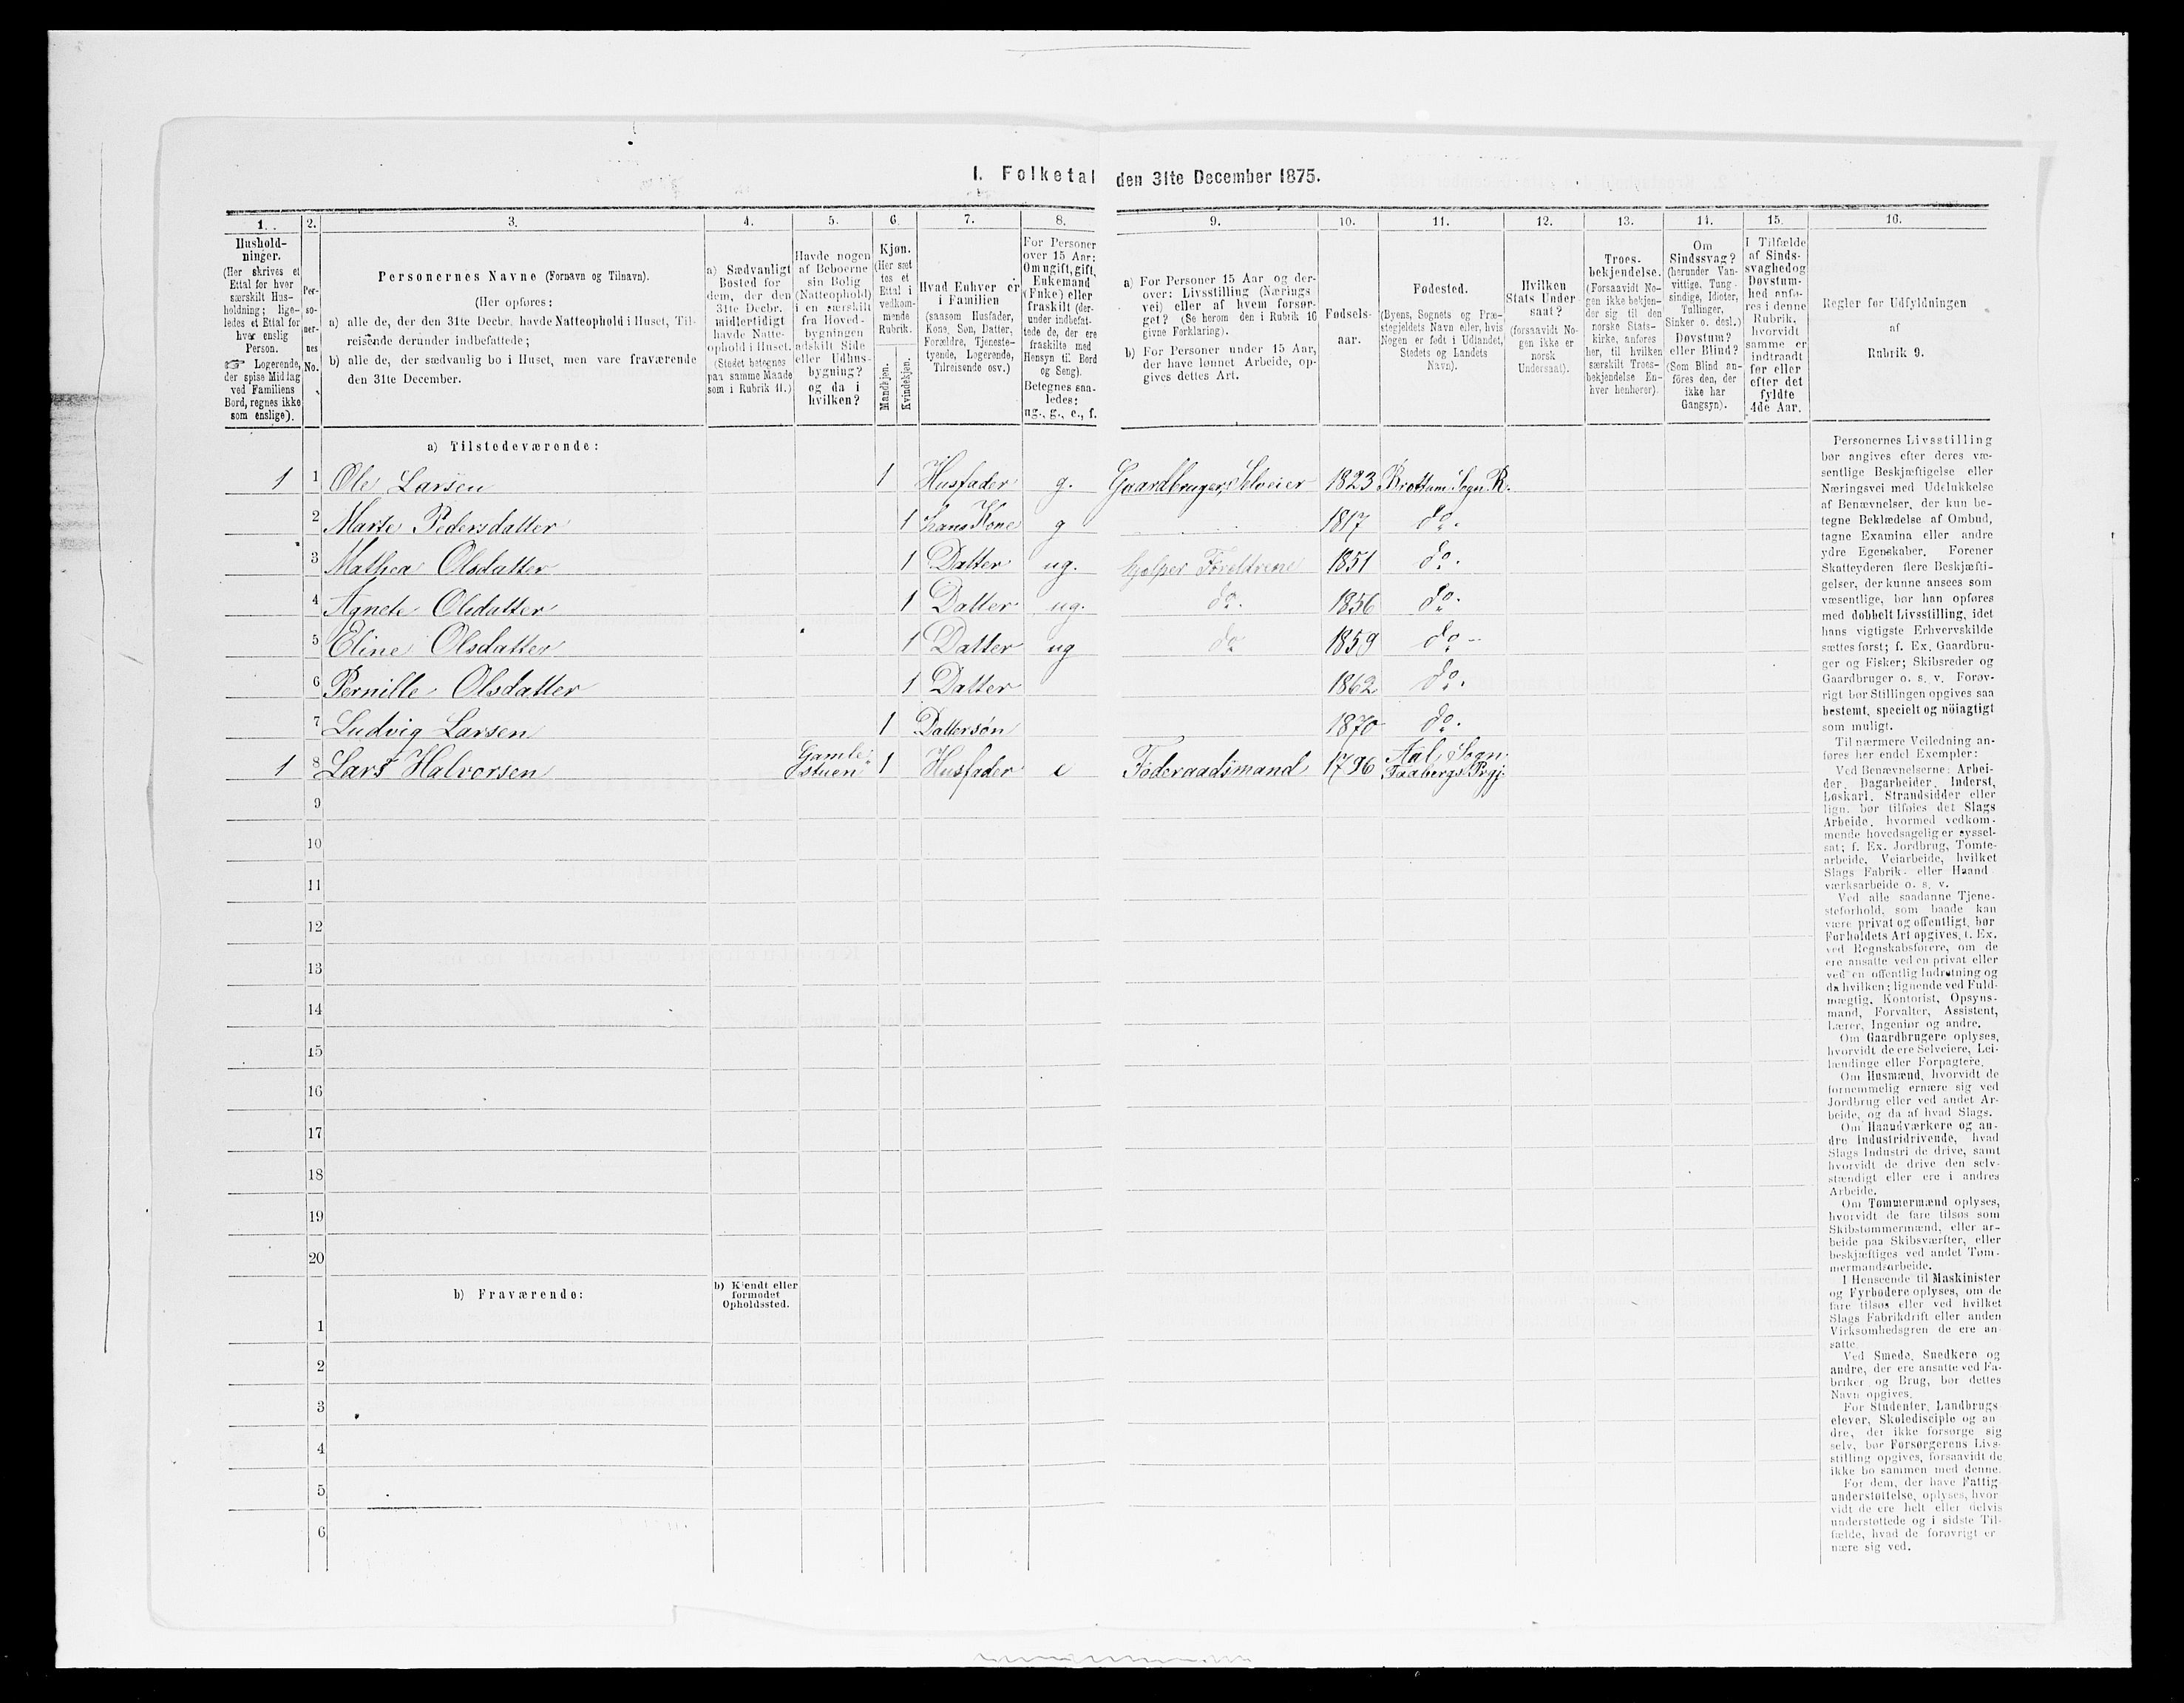 I. Folketal den 31te December 1875.
1. 2. 3. 4. 5. 6. 7. 8. 9. 10. 11. 12. 13. 14. 15. 16.
Hushold-
ninger.
(Her skrives et
Ettal for hver
særskilt Hus-
holdning; lige-
ledes et Ettal for
hver enslig
Person.
☞ Logerende,
der spise Middag
ved Familiens
Bord, regnes ikke
som enslige).
Per-
so-
ner-
nes
No.
Personernes Navne (Fornavn og Tilnavn).
(Her opføres:
a) alle de, der den 31te Decbr. havde Natteophold i Huset, Til-
reisende derunder indbefattede;
b) alle de, der sædvanlig bo i Huset, men vare fraværende
den 31te December.
a) Sædvanligt
Bosted for
dem, der den
31te Decbr.
midlertidigt
havde Natte-
ophold i Huset.
(Stedet betegnes
paa samme Maade
som i Rubrik 11.)
Havde nogen
af Beboerne
sin Bolig
(Natteophold)
i en særskilt
fra Hoved-
bygningen
adskilt Side
eller Udhus-
bygning?
og da i
hvilken?
Kjøn.
(Her sæt-
tes et
Ettal i
vedkom-
mende
Rubrik.
Mandkjøn.
Kvindekjøn.
Hvad Enhver er
i Familien
(saasom Husfader,
Kone, Søn, Datter,
Forældre, Tjeneste-
tyende, Logerende,
Tilreisende osv.)
For Personer
over 15 Aar:
Om ugift, gift,
Enkemand
(Enke) eller
fraskilt (der-
under indbefat-
tede de, der ere
fraskilte med
Hensyn til Bord
og Seng).
Betegnes saa-
ledes:
ug., g., e., f.
a) For Personer 15 Aar og der-
over: Livsstilling (Nærings-
vei) eller af hvem forsør-
get? (Se herom den i Rubrik 16
givne Forklaring).
b) For Personer under 15 Aar,
der have lønnet Arbeide, op-
gives dettes Art.
Fødsels-
aar.
Fødested.
(Byens, Sognets og Præ-
stegjeldets Navn eller, hvis
Nogen er født i Udlandet,
Stedets og Landets
Navn).
Hvilken
Stats Under-
saat?
(forsaavidt No-
gen ikke er
norsk
Undersaat).
Troes-
bekjendelse.
(Forsaavidt No-
gen ikke bekjen-
der sig til den
norske Stats-
kirke, anføres
her, til hvilken
særskilt Troes-
bekjendelse En-
hver henhører).
Om
Sindssvag?
(herunder Van-
vittige, Tung-
sindige, Idioter,
Tullinger,
Sinker o. desl.)
Døvstum?
eller Blind?
(Som Blind an-
føres den, der
ikke har
Gangsyn).
I Tilfælde
af Sinds-
svaghed og
Døvstum-
hed anfø-
res i denne
Rubrik,
hvorvidt
samme er
indtraadt
før eller
efter det
fyldte
4de Aar.
Regler for Udfyldningen
af
Rubrik 9.
a) Tilstedeværende:
1 1 Ole Larsen 1 Husfader g. Gaardbruger, Selveier 1823 Sogn R.
2 Marte Pedersdatter 1 hans Kone g 1817 do.
3 Mathea Olsdatter 1 Datter ug. hjelper Foreldrene 1851 do.
4 Agnete Olsdatter 1 Datter ug. do. 1856 do.
5 Eline Olsdatter 1 Datter ug do 1859 do
6 Pernille Olsdatter 1 Datter 1862 do.
7 Ludvig Larsen 1 Dattersøn 1870 do.
1 8 Lars Halvorsen Gamle-
stuen 1 Husfader e Føderaadsmand 1796 Aal Sogn
Faabergs Prgj.
9
10
11
12
13
14
15
16
17
18
19
20
b) Fraværende:
b) Kjendt eller
formodet
Opholdssted.
1
2
3
4
5
6
Personernes Livsstilling
bør angives efter deres væ-
sentlige Beskjæftigelse eller
Næringsvei med Udelukkelse
af Benævnelser, der kun be-
tegne Beklædelse af Ombud,
tagne Examina eller andre
ydre Egenskaber. Forener
Skatteyderen flere Beskjæfti-
gelser, der kunne ansees som
væsentlige, bør han opføres
med dobbelt Livsstilling, idet
hans vigtigste Erhvervskilde
sættes først; f. Ex. Gaardbru-
ger og Fisker; Skibsreder og
Gaardbruger o. s. v. Forøv-
rigt bør Stillingen opgives saa
bestemt, specielt og nöiagtigt
som muligt.
Til nærmere Veiledning an-
føres her endel Exempler:
Ved Benævnelserne: Arbei-
der, Dagarbeider, Inderst,
Løskarl, Strandsidder eller
lign. bør tilføies det Slags
Arbeide, hvormed vedkom-
mende hovedsagelig er syssel-
sat; f. Ex. Jordbrug, Tomte-
arbeide, Veiarbeide, hvilket
Slags Fabrik- eller Haand-
værksarbeide o. s. v.
Ved alle saadanne Tjene-
steforhold, som baade kan
være privat og offentligt, bør
Forholdets Art opgives, f. Ex.
ved Regnskabsførere, om de
ere ansatte ved en privat eller
ved en offentlig Indretning og
da hvilken; lignende ved Fuld-
mægtig, Kontorist, Opsyns-
mand, Forvalter, Assistent,
Lærer, Ingeniør og andre.
Om Gaardbrugere oplyses,
hvorvidt de ere Selveiere, Lei-
lændinge eller Forpagtere.
Om Husmænd, hvorvidt de
fornemmelig ernære sig ved
Jordbrug eller ved andet Ar-
beide, og da af hvad Slags.
Om Haandværkere og an-
dre Industridrivende, hvad
Slags Industri de drive, samt
hvorvidt de drive den selv-
stændigt eller ere i andres
Arbeide.
Om Tømmermænd oplyses,
hvorvidt de fare tilsøs som
Skibstømmermænd, eller ar-
beide paa Skibsværfter, eller
beskjæftiges ved andet Tøm-
mermandsarbeide.
I Henseende til Maskinister
og Fyrbødere oplyses, om de
fare tilsøs eller ved hvilket
Slags Fabrikdrift eller anden
Virksomhedsgren de ere an-
satte.
Ved Smede, Snedkere og
andre, der ere ansatte ved Fa-
briker og Brug, bør dettes
Navn opgives.
For Studenter, Landbrugs-
elever, Skoledisciple og an-
dre, der ikke forsørge sig
selv, bør Forsørgerens Livs-
stilling opgives, forsaavidt de
ikke bo sammen med denne.
For dem, der have Fattig-
understøttelse, oplyses, hvor-
vidt de ere helt eller delvis
understøttede og i sidste Til-
fælde, hvad de forøvrigt er-
nære sig ved.